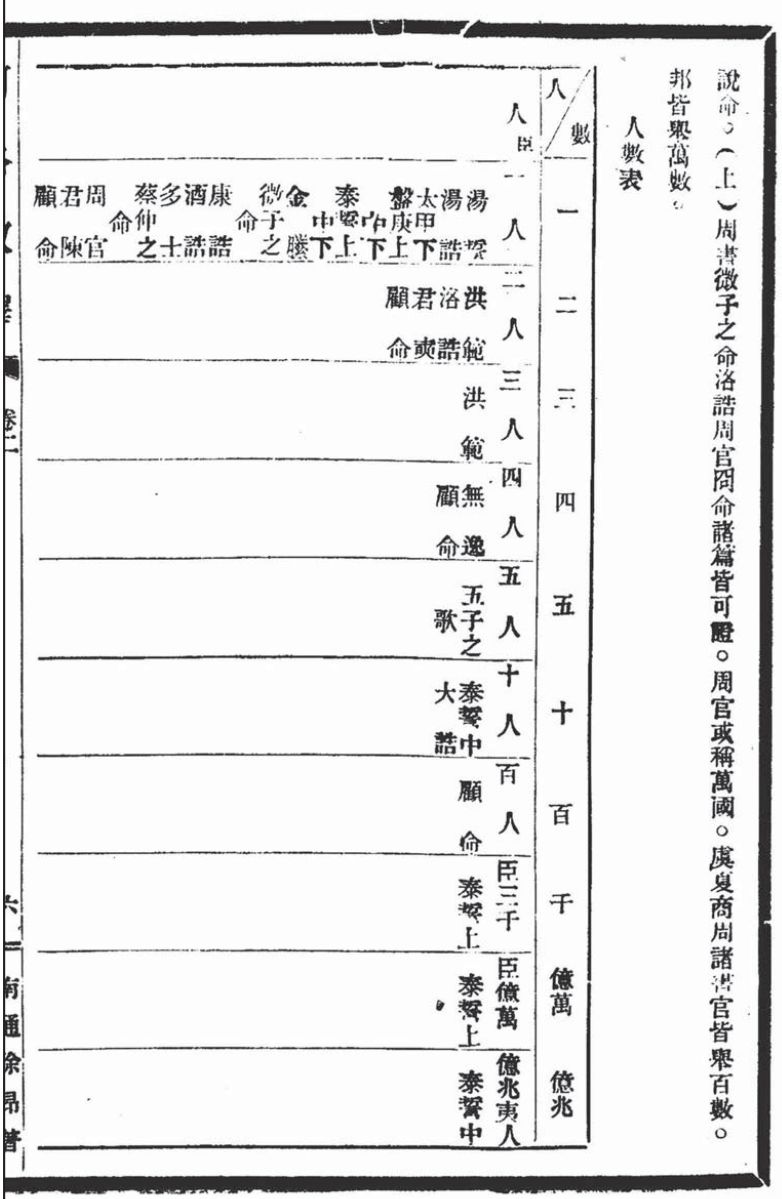 說命。(上)周書微子之命洛誥周官冏命諸篇皆可證。周官或稱萬國。虞夏商周諸書官皆舉百數。
邦皆舉萬數。
人數表
人 數
一
二
三
四
五
十
百
千
億萬
億兆
人臣
一人
湯誓
湯誥
太甲下
盤庚上
中下
泰誓上
中下
金縢
微子之
命
康誥
酒誥
多士
蔡仲之
命
周官
君陳
顧命
二人
洪範
洛誥
君奭
顧命
三人
洪範
四人
無逸
顧命
五人
五子之
歌
十人
泰誓中
大誥
百人
顧命
臣三千
泰誓上
臣億萬
泰誓上
億兆夷人
泰誓中
卷二
六
南通徐昂著